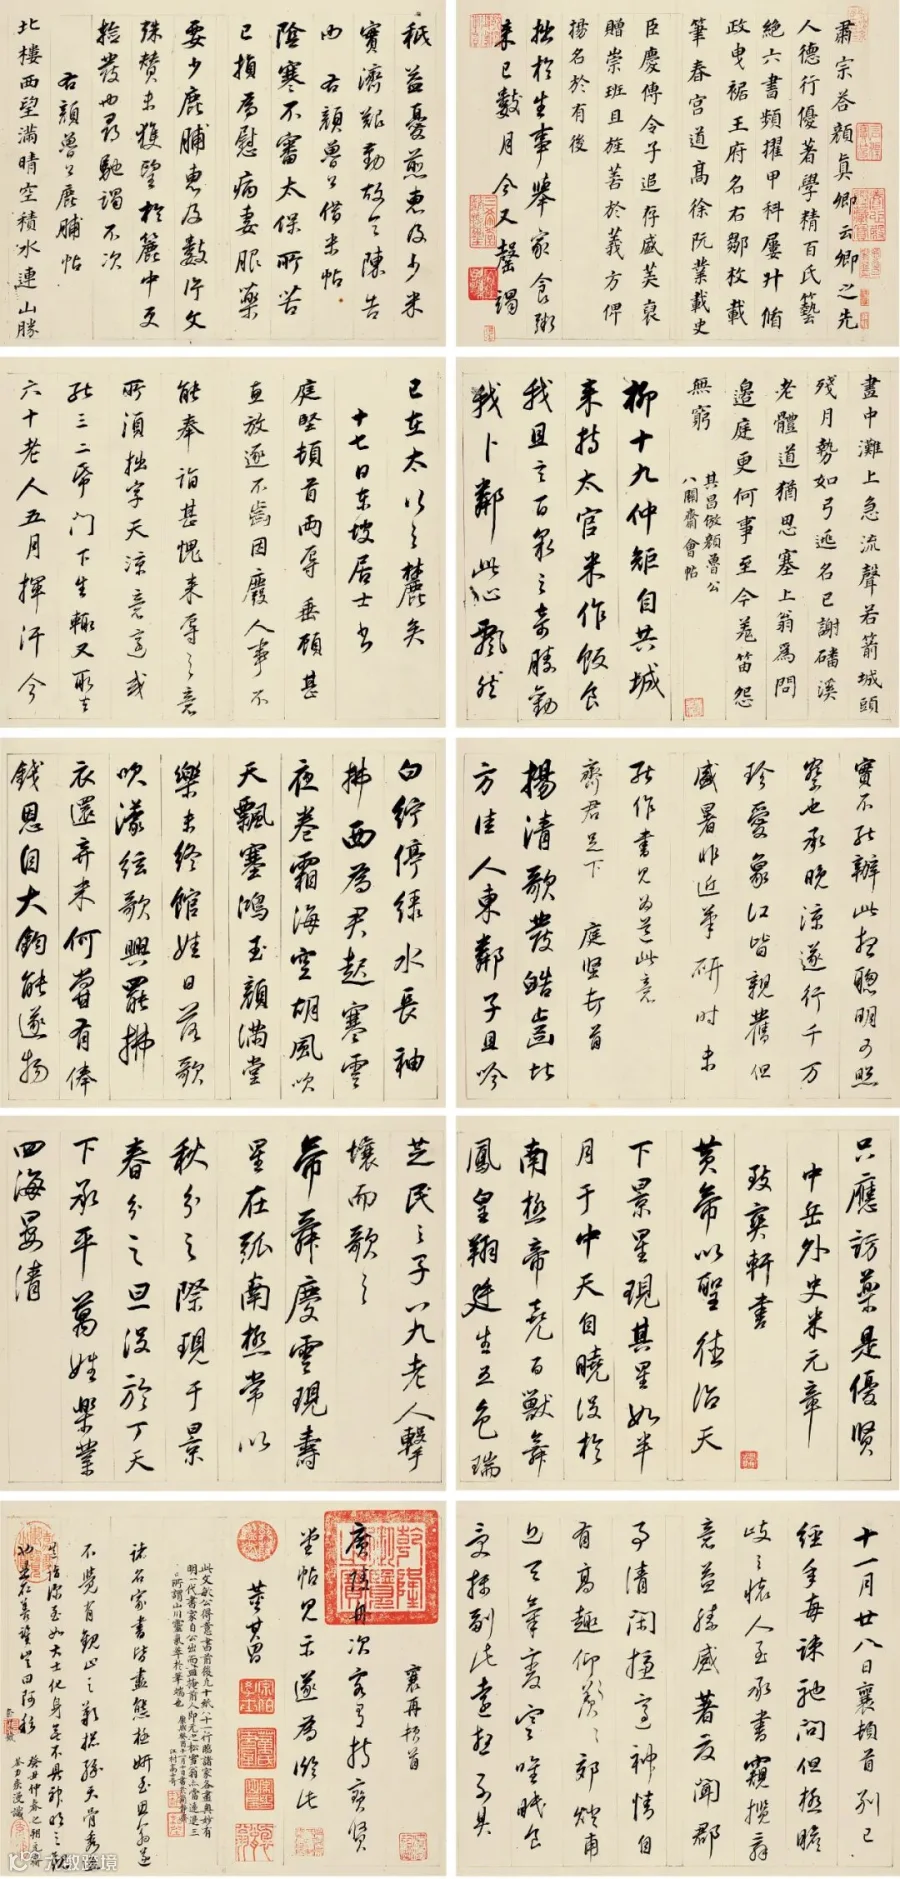 肅宗答顏真卿云卿之先
人德行優著學精百氏藝
絕六書頻擢甲科屢升循
政曳裾王府名右鄒枚載
筆春宮道高徐阮業載史
臣慶傳令子追存盛美裒
贈崇班且旌善於義方俾
揚名於有後
拙於生事舉家食粥
來已數月今又罄竭
秖益憂煎惠及少米
實濟艱勤故令陳告
內 右顏魯公借米帖
陰寒不審太保所苦
已損為慰病妻服藥
要少鹿脯惠及數片文
殊贊未獲望於簏中更
撿發也尋馳謁不次
右顏魯公鹿脯帖
北樓西望滿晴空積水連山勝
畫中灘上急流聲若箭城頭
殘月勢如弓逃名已謝磻溪
老體道猶思塞上翁為問
邊庭更何事至今羌笛怨
無窮
其昌倣顏魯公
八關齋會帖
柳十九仲矩自共城
來持太官米作飯食
我且言百泉之奇勝勸
我卜鄰此心飄然
已在太行之麓矣
十七日東坡居士書
庭堅頓首兩辱垂顧甚
直放逐不齒因廢人事不
能奉詣甚愧來辱之意
所須拙字天涼意適或
能三二紙門下生輒又取去
六十老人五月揮汗今
實不能辦此想聰明可照
察也承晚涼遂行千万
珍愛象江皆親舊但
盛暑非近筆研時未
能作書見為道此意
齊君足下 庭堅頓首
揚清歌發皓齒北
方佳人東鄰子且吟
白紵停綠水長袖
拂面為君起寒雲
夜卷霜海空胡風吹
天飄塞鴻玉顏滿堂
樂未終館娃日落歌
吹濛絃歌興罷拂
衣還棄來何嘗有俸
錢恩自大鈞能遂物
只應訪藥是優賢
中岳外史米元章
致爽軒書
黃帝以聖德治天
下景星現其星如半
月于中天自曉沒於
南極帝堯百獸舞
鳳皇翔廷生五色瑞
芝民之子以九老人擊
壤而歌之
帝舜慶雲現壽
星在弧南極常以
秋分之際現于景
春分之旦沒於丁天
下承平萬姓樂業
四海晏清
十一月廿八日襄頓首別已
經年每疎馳問但極瞻
之懷人至承書竊攬
意益勝感著友聞郡
事清閑 適神情自
有高趣仰羨之郊
襄再頓首
廣陵舟次客有持寶賢
堂帖見示遂為臨此
董其昌
諸名家書皆盡態極妍
不覺有觀止之